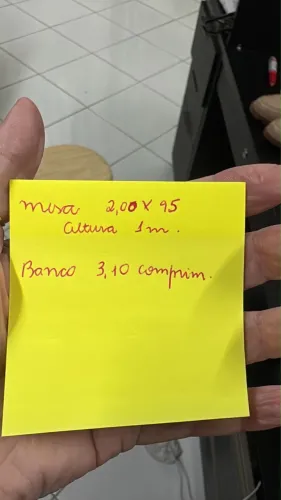 Mesa 2,00 X 95
Altura 1m.
Banco 3,10 comprim.